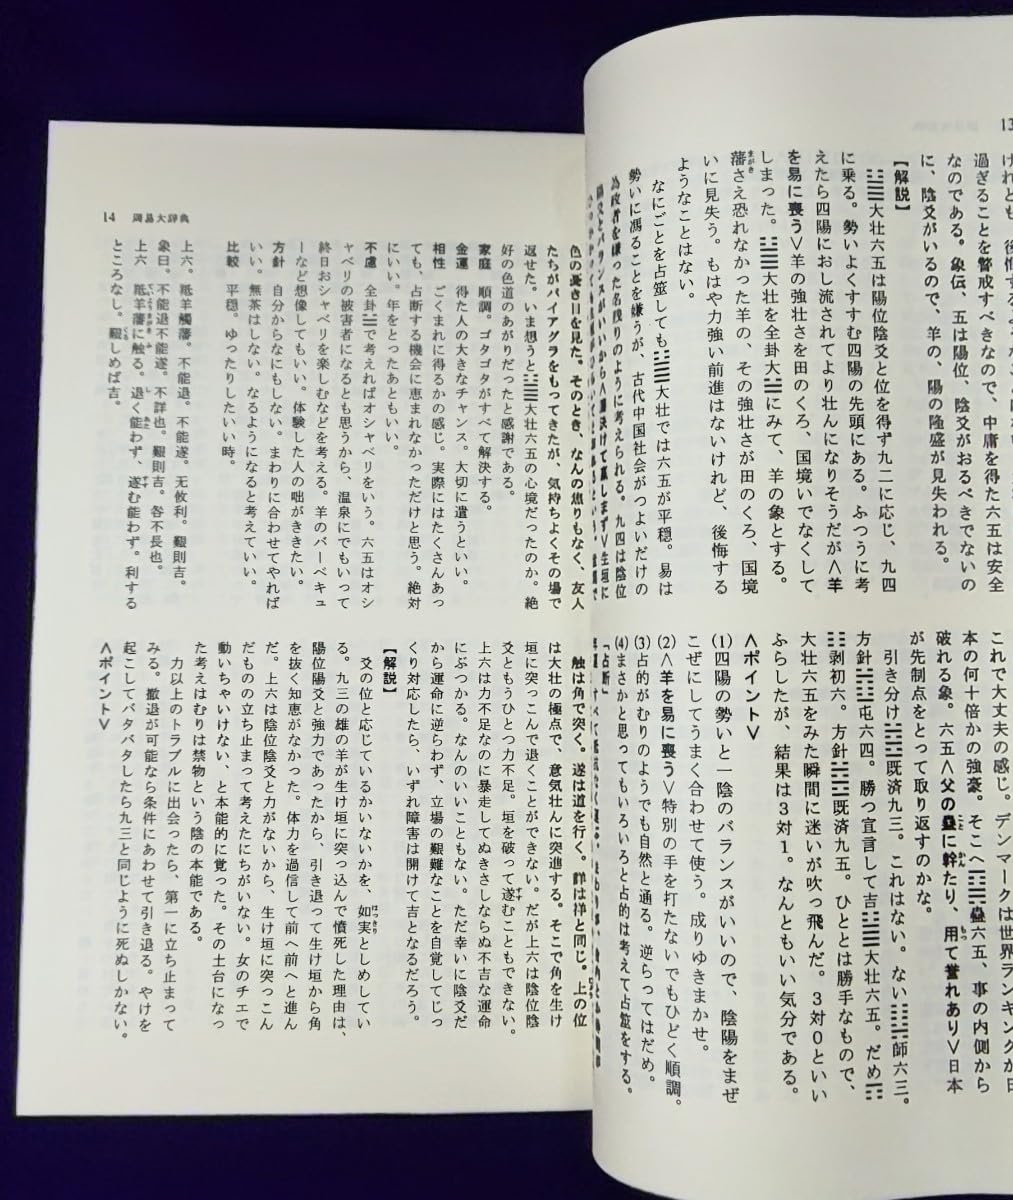 13
過ぎることを警戒すべきなので、中庸を得た六五は安全
なのである。象伝、五は陽位、陰爻がおるべきでないの
に、陰爻がいるので、羊の、陽の隆盛が見失われる。
【解説】
䷡大壮六五は陽位陰爻と位を得ず九二に応じ、九四
に乗る。勢いよくすすむ四陽の先頭にある。ふつうに考
えたら四陽におし流されてより壮んになりそうだが〈羊
を易に喪う〉羊の強壮さを田のくろ、国境いでなくして
しまった。䷡大壮を全卦大☱にみて、羊の象とする。
藩さえ恐れなかった羊の、その強壮さが田のくろ、国境
いに見失う。もはや力強い前進はないけれど、後悔する
ようなことはない。
なにごとを占筮しても䷡大壮では六五が平穏。易は
勢いに馮ることを嫌うが、古代中国社会がつよいだけの
為政者を嫌った名残りのように考えられる。九四は陰位
これで大丈夫の感じ。デンマークは世界ランキングが日
本の何十倍かの強豪。そこへ䷑蠱六五、事の内側から
破れる象。六五〈父の蠱に幹たり、用て誉れあり〉日本
が先制点をとって取り返すのかな。
引き分け䷾既済九三。これはない。ない䷆師六三。
方針䷂屯六四。勝つ宣言して吉䷡大壮六五。だめ
䷖剥初六。方針䷾既済九五。ひととは勝手なもので、
大壮六五をみた瞬間に迷いが吹っ飛んだ。3対0といい
ふらしたが、結果は3対1。なんともいい気分である。
〈ポイント〉
(1)四陽の勢いと一陰のバランスがいいので、陰陽をまぜ
こぜにしてうまく合わせて使う。成りゆきまかせ。
(2)〈羊を易に喪う〉特別の手を打たないでもひどく順調。
(3)占的がむりのようでも自然と通る。逆らってはだめ。
(4)まさかと思ってもいろいろと占的は考えて占筮をする。
「占断」
14 周易大辞典
色の憂き目を見た。そのとき、なんの焦りもなく、友人
たちがバイアグラをもってきたが、気持ちよくその場で
返せた。いま想うと䷡大壮六五の心境だったのか。絶
好の色道のあがりだったと感謝である。
家庭 順調。ゴタゴタがすべて解決する。
金運 得た人の大きなチャンス。大切に遣うといい。
相性 ごくまれに得るかの感じ。実際にはたくさんあっ
ても、占断する機会に恵まれなかっただけと思う。絶対
にいい。年をとったあともいい。
不慮 全卦☱で考えればオシャベリをいう。六五はオシ
ャベリの被害者になるとも思うから、温泉にでもいって
終日おシャベリを楽しむなどを考える。羊のバーベキュ
ーなど想像してもいい。体験した人の咄がききたい。
方針 自分からなにもしない。まわりに合わせてやれば
いい。無茶はしない。なるようになると考えていい。
比較 平穏。ゆったりしたいい時。
上六。羝羊觸藩。不能退。不能遂。无攸利。艱則吉。
象曰。不能退不能遂。不詳也。艱則吉。咎不長也。
上六 羝羊藩に触る。退く能わず、遂む能わず。利する
ところなし。艱しめば吉。
触は角で突く。遂は道を行く。詳は祥と同じ。上の位
は大壮の極点で、意気壮んに突進する。そこで角を生け
垣に突っこんで退くことができない。だが上六は陰位陰
爻ともうひとつ力不足。垣を破って遂むこともできない。
上六は力不足なのに暴走してぬきさしならぬ不吉な運命
にぶつかる。なんのいいこともない。ただ幸いに陰爻だ
から運命に逆らわず、立場の艱難なことを自覚してじっ
くり対応したら、いずれ障害は開けて吉となるだろう。
【解説】
爻の位と応じているかいないかを、如実としめしてい
る。九三の雄の羊が生け垣に突っ込んで憤死した理由は、
陽位陽爻と強力であったから、引き退って生け垣から角
を抜く知恵がなかった。体力を過信して前へ前へと進ん
だ。上六は陰位陰爻と力がないから、生け垣に突っこん
だものの立ち止まって考えたにちがいない。女のチエで
動いちゃいけない、と本能的に覚った。その土台になっ
た考えはむりは禁物という陰の本能である。
力以上のトラブルに出会ったら、第一に立ち止まって
みる。撤退が可能なら条件にあわせて引き退る。やけを
起こしてバタバタしたら九三と同じように死ぬしかない。
〈ポイント〉